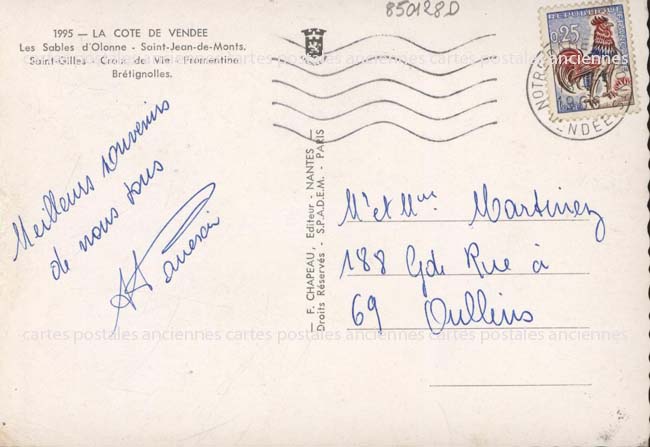 1995 — LA COTE DE VENDEE
Les Sables d'Olonne - Saint-Jean-de-Monts.
Saint-Gilles - Croix de Vie - Fromentine
Brétignolles.
850128D
REPUBLIQUE FRANÇAISE
0,25
NOTRE
196
VENDEE
Meilleurs souvenirs
de nous tous
— F. CHAPEAU, Editeur - NANTES —
Droits Réservés - S.P.A.D.E.M. - PARIS
Mr et Mme Martinez
188 Gde Rue à
69 Oullins
cartes postales anciennes cartes postales anciennes cartes postales anciennes
cartes postales anciennes cartes postales anciennes cartes postales anciennes